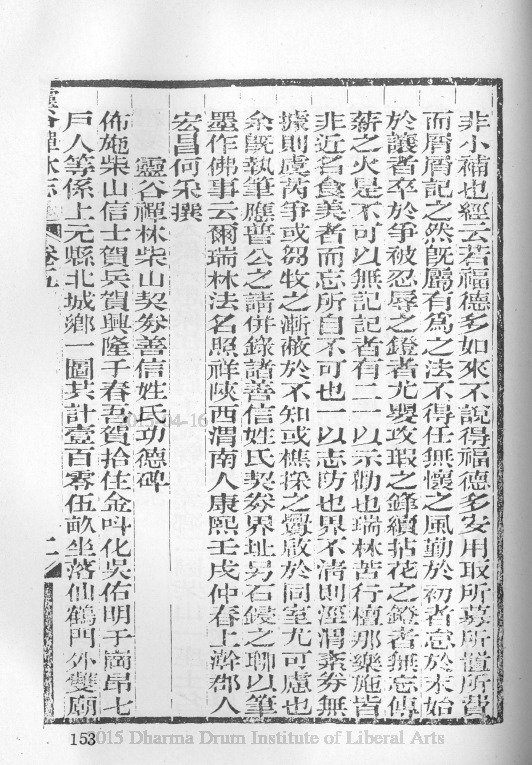 非小補也經云若福德多如來不說得福德多安用取所募所造所費
而屑屑記之然既屬有爲之法不得任無懷之風勤於初者怠於末始
於讓者卒於爭被忍辱之鎧者尤嬰攻瑕之鋒續拈花之燈者無忘傳
薪之火是不可以無記記者有二一以示勸也瑞林苦行檀那樂施皆
非近名食美者而忘所自不可也一以志防也界不清則涇渭紊券無
據則虞芮爭或芻牧之漸蔽於不知或樵採之釁啟於同室尤可慮也
余既執筆應普公之請併錄諸善信姓氏契券界址另石鋟之聊以筆
墨作佛事云爾瑞林法名照祥陝西渭南人康熙壬戌仲春上澣郡人
宏昌何宋撰
靈谷禪林柴山契券善信姓氏功德碑
佈施柴山信士賀兵賀興隆子春吾賀拾住金呌化吳佑明于商昂七
戶人等係上元縣北城鄉一圖共計壹百零伍畝坐落仙鶴門外雙廟
靈谷禪林志 卷五 二
153
2015-04-16
©2015 Dharma Drum Institute of Liberal Arts